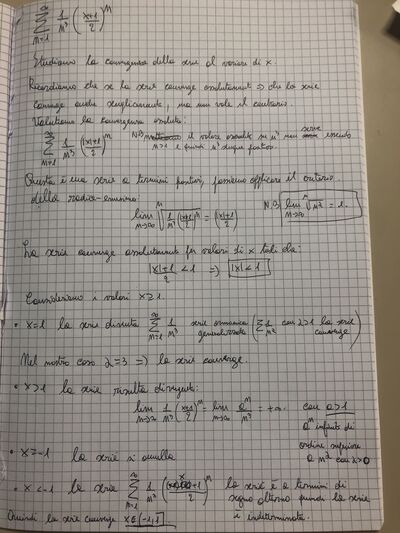 ∞
Σ 1/M³ ((x+1)/2)^M
M=1
Studiamo la convergenza della serie al variare di x.
Ricordiamo che se la serie converge assolutamente => che la serie
converge anche semplicemente, ma non vale il contrario.
Valutiamo la convergenza assoluta:
Σ_{M=1}^∞ 1/M³ (|x+1|/2)^M N.B. il valore assoluto su M³ non serve essendo
M>1 e quindi M³ sempre positivo.
Questa è una serie a termini positivi, possiamo applicare il criterio
della radice ennesima:
lim_{M→∞} ᴹ√(1/M³ (|x+1|/2)^M) = (|x+1|/2) N.B. lim_{M→∞} ᴹ√(M^2) = 1.
La serie converge assolutamente per valori di x tali che:
|x|+1/2 < 1 => |x| < 1
Consideriamo i valori x≥1.
• x=1 la serie diventa Σ_{M=1}^∞ 1/M³ serie armonica generalizzata (Σ 1/M^2 con 2>1 la serie converge)
Nel nostro caso 2=3 => la serie converge.
• x>1 la serie risulta divergente:
lim_{M→∞} 1/M³ ((x+1)/2)^M = lim_{M→∞} a^M/M³ = +∞. con a>1
a^M infinito di
ordine superiore
a M^2 con 2>0
• x=-1 la serie si annulla
• x<-1 la serie Σ_{M=1}^∞ 1/M³ ((x+1)/2)^M la serie è a termini di
segno alterno quindi la serie
è indeterminata.
Quindi la serie converge x∈[-1,1]